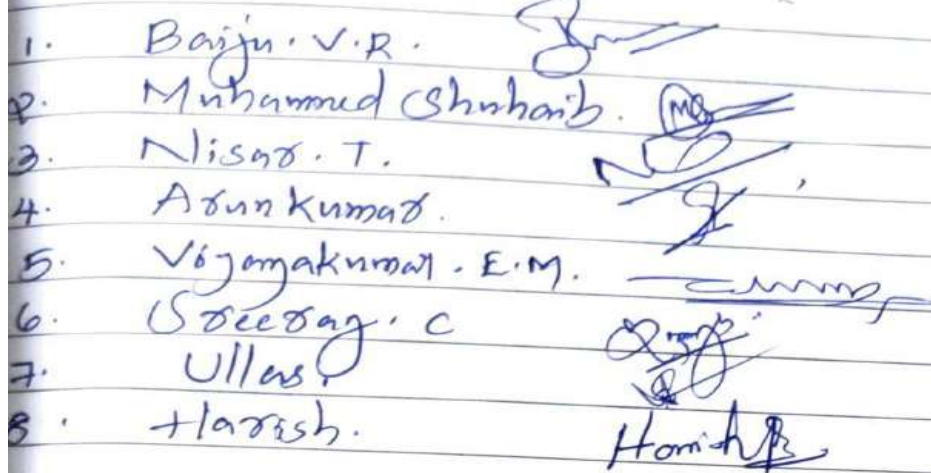 1. Baiju. V.R.
2. Muhammed Shuhaib.
3. Nisar. T.
4. Arun kumar.
5. Vijayakumar. E.M.
6. Sreerag. C
7. Ullas.
8. Harish. Harish